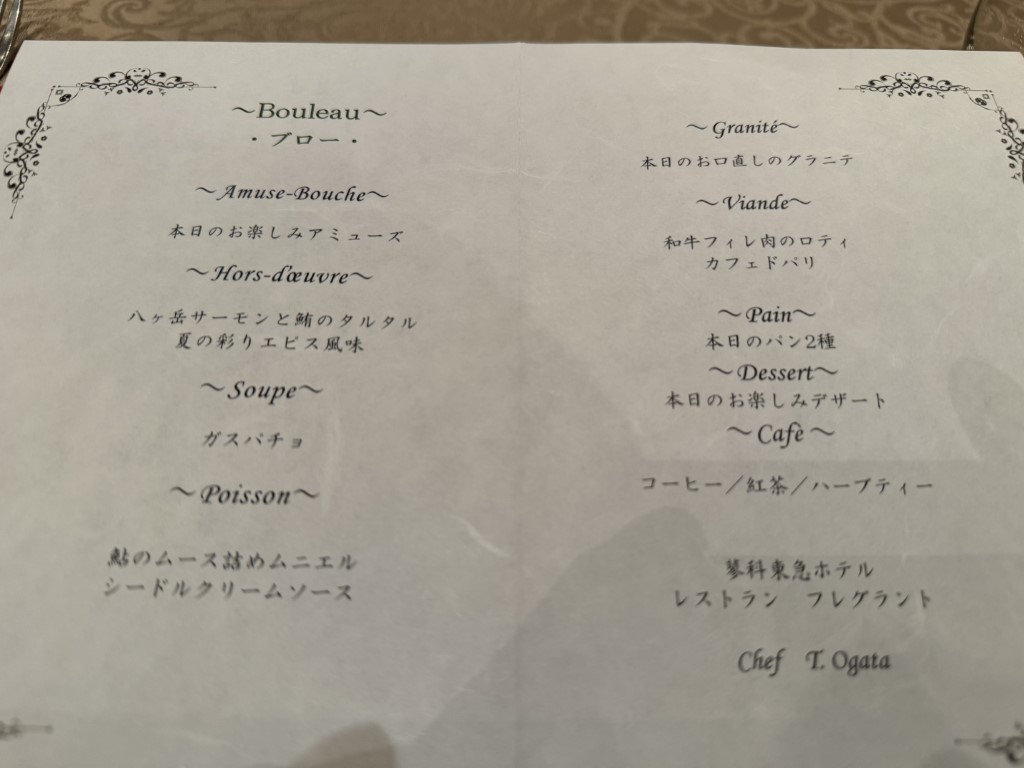 ～Bouleau～
・ブロー・
～Amuse-Bouche～
本日のお楽しみアミューズ
～Hors-d'œuvre～
八ヶ岳サーモンと鮪のタルタル
夏の彩りエピス風味
～Soupe～
ガスパチョ
～Poisson～
鮎のムース詰めムニエル
シードルクリームソース
～Granité～
本日のお口直しのグラニテ
～Viande～
和牛フィレ肉のロティ
カフェドパリ
～Pain～
本日のパン2種
～Dessert～
本日のお楽しみデザート
～Cafè～
コーヒー／紅茶／ハーブティー
蓼科東急ホテル
レストラン　フレグラント
Chef　T. Ogata